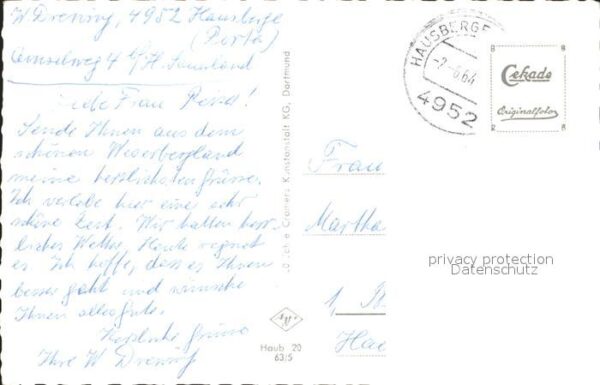 W Drewing, 4952 Hausberge
(Porta)
Amselweg 4 b/H. Sauerland
Liebe Frau
Sende Ihnen aus dem
schönen Weserbergland
meine herzlichsten Grüsse.
Ich verlebe hier eine sehr
schöne Zeit. Wir hatten herr-
liches Wetter, Heute regnet
es. Ich hoffe, dass es Ihnen
besser geht und wünsche
Ihnen alles gute.
Herzliche Grüsse
Ihre W Drewing
Cramers Kunstanstalt KG, Dortmund
Haub 20
63/5
HAUSBERGE
-6.64
4952
Cekade
Originalfoto
Frau
Martha
1
privacy protection
Datenschutz